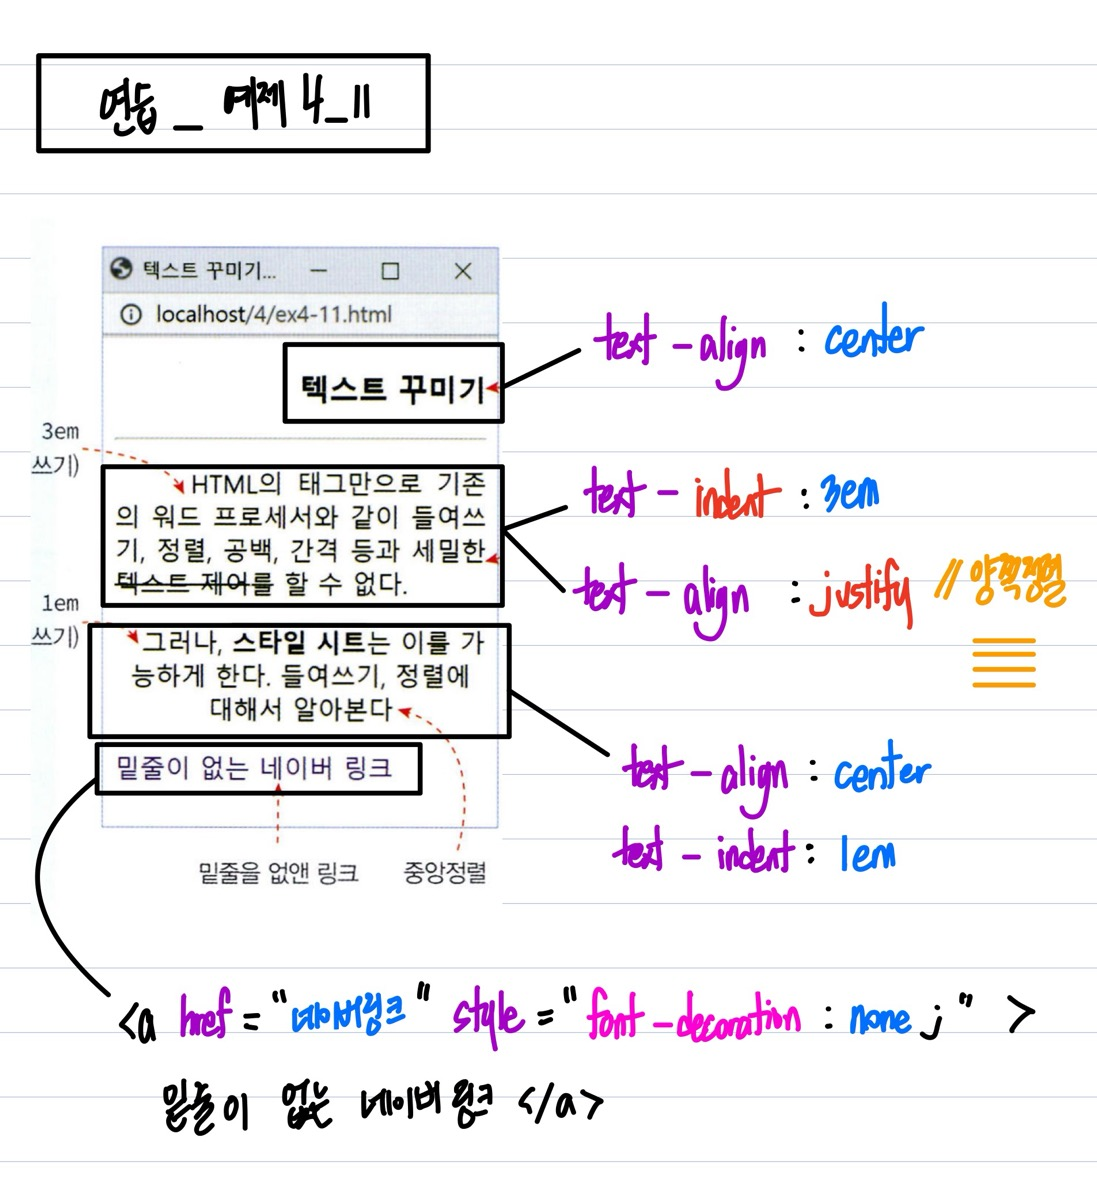 연습 _ 예제 4_11
텍스트 꾸미기...
localhost/4/ex4-11.html
텍스트 꾸미기
text - align : center
3em
쓰기)
HTML의 태그만으로 기존
의 워드 프로세서와 같이 들여쓰
기, 정렬, 공백, 간격 등과 세밀한
텍스트 제어를 할 수 없다.
text - indent : 3em
text - align : justify // 양쪽정렬
1em
쓰기)
그러나, 스타일 시트는 이를 가
능하게 한다. 들여쓰기, 정렬에
대해서 알아본다
text - align : center
text - indent : 1em
밑줄이 없는 네이버 링크
밑줄을 없앤 링크
중앙정렬
<a href = "네이버링크" style = "font - decoration : none ;" >
밑줄이 없는 네이버 링크 </a>